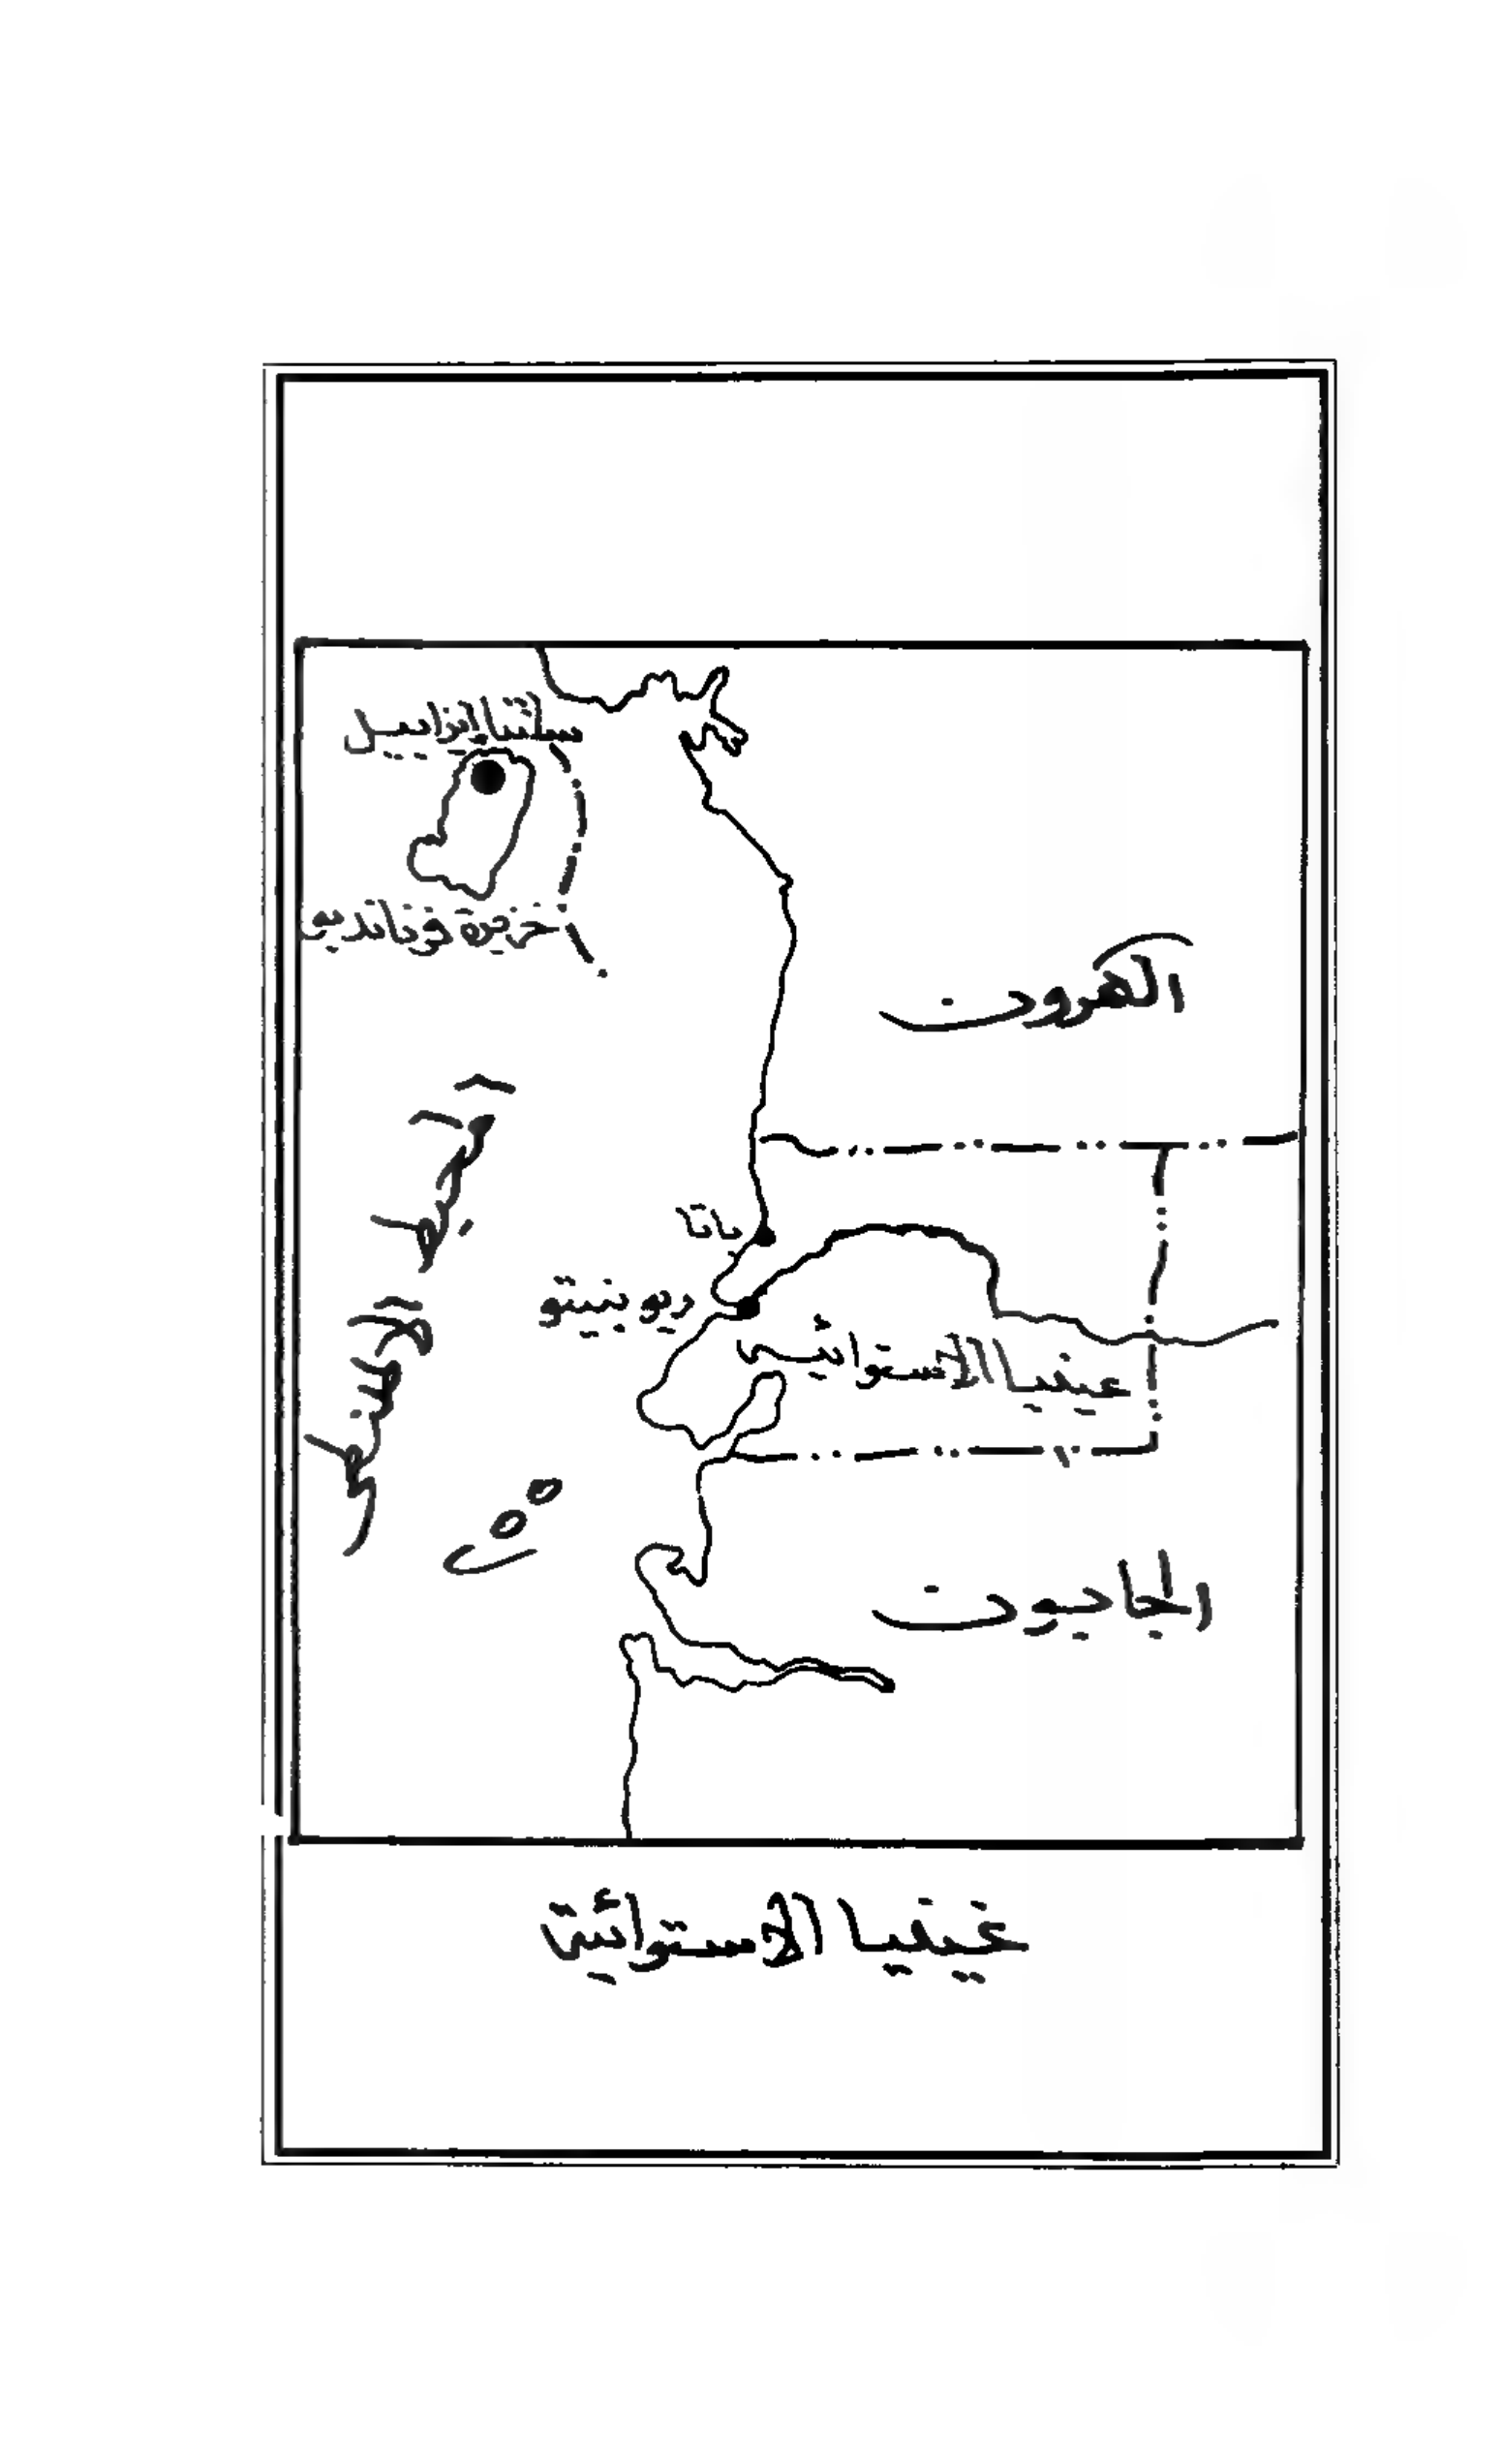 سانتا ايزابيل
جزيرة فرناندبو
الكمرون
المحيط الاطلنطي
باتا
ريو بنيتو
غينيا الاستوائية
الجابون
غينيا الاستوائية